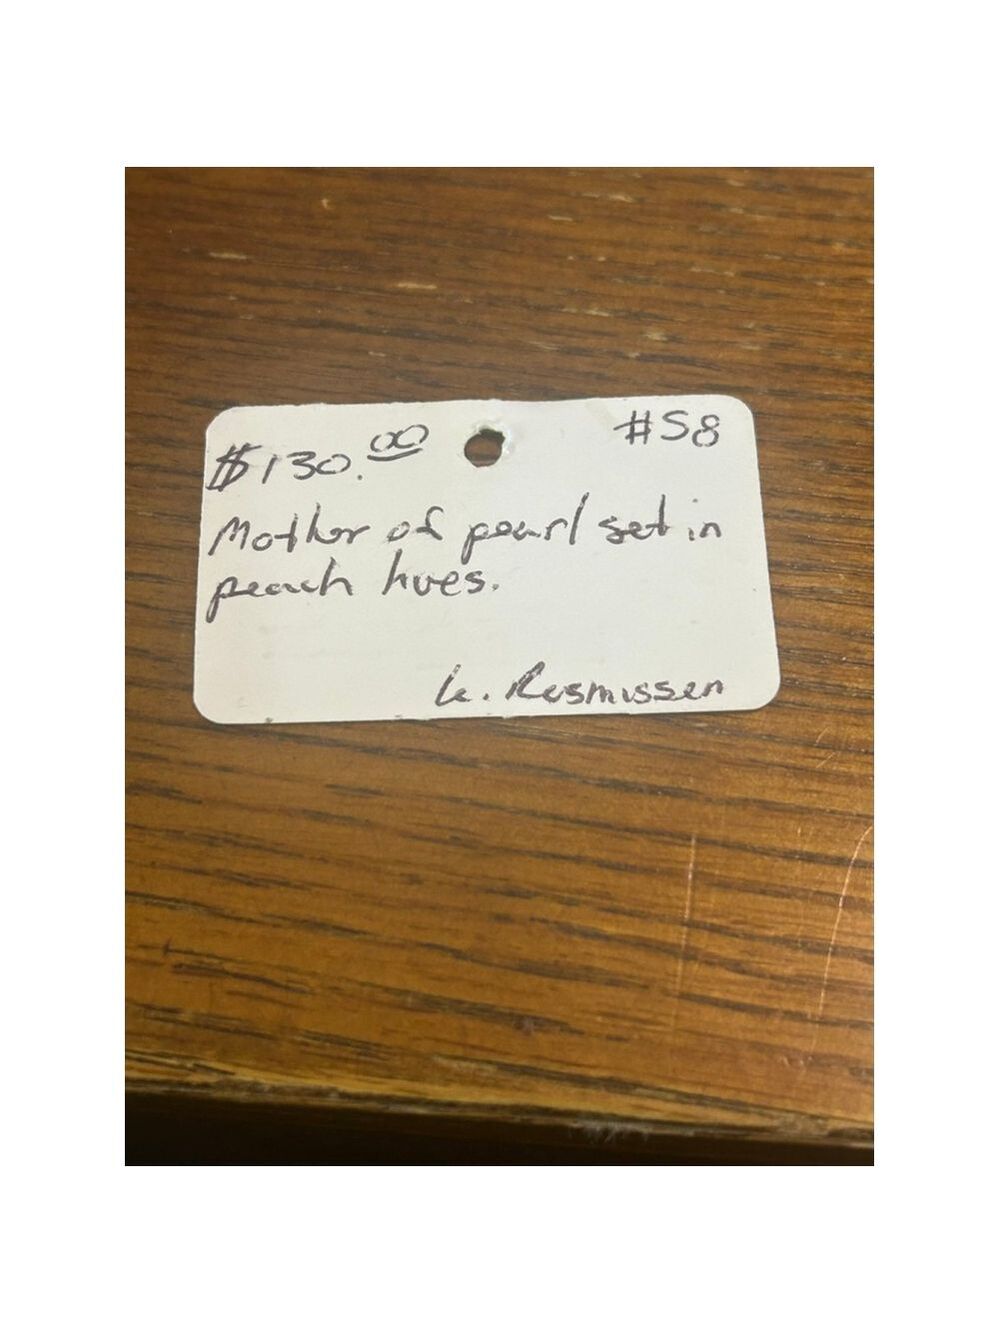 $130.00 #58
Mother of pearl set in
peach hues.
K. Rasmussen